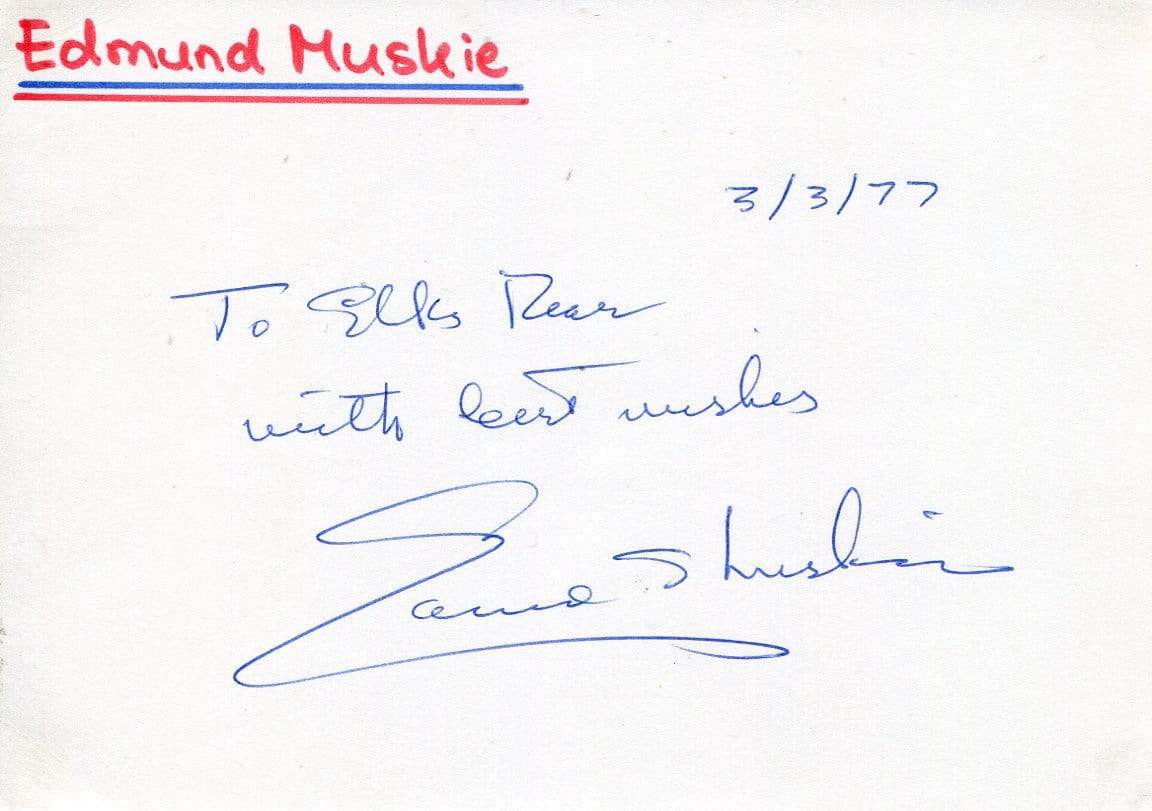 Edmund Muskie
3/3/77
To Elks
with best wishes
Edmund S Muskie